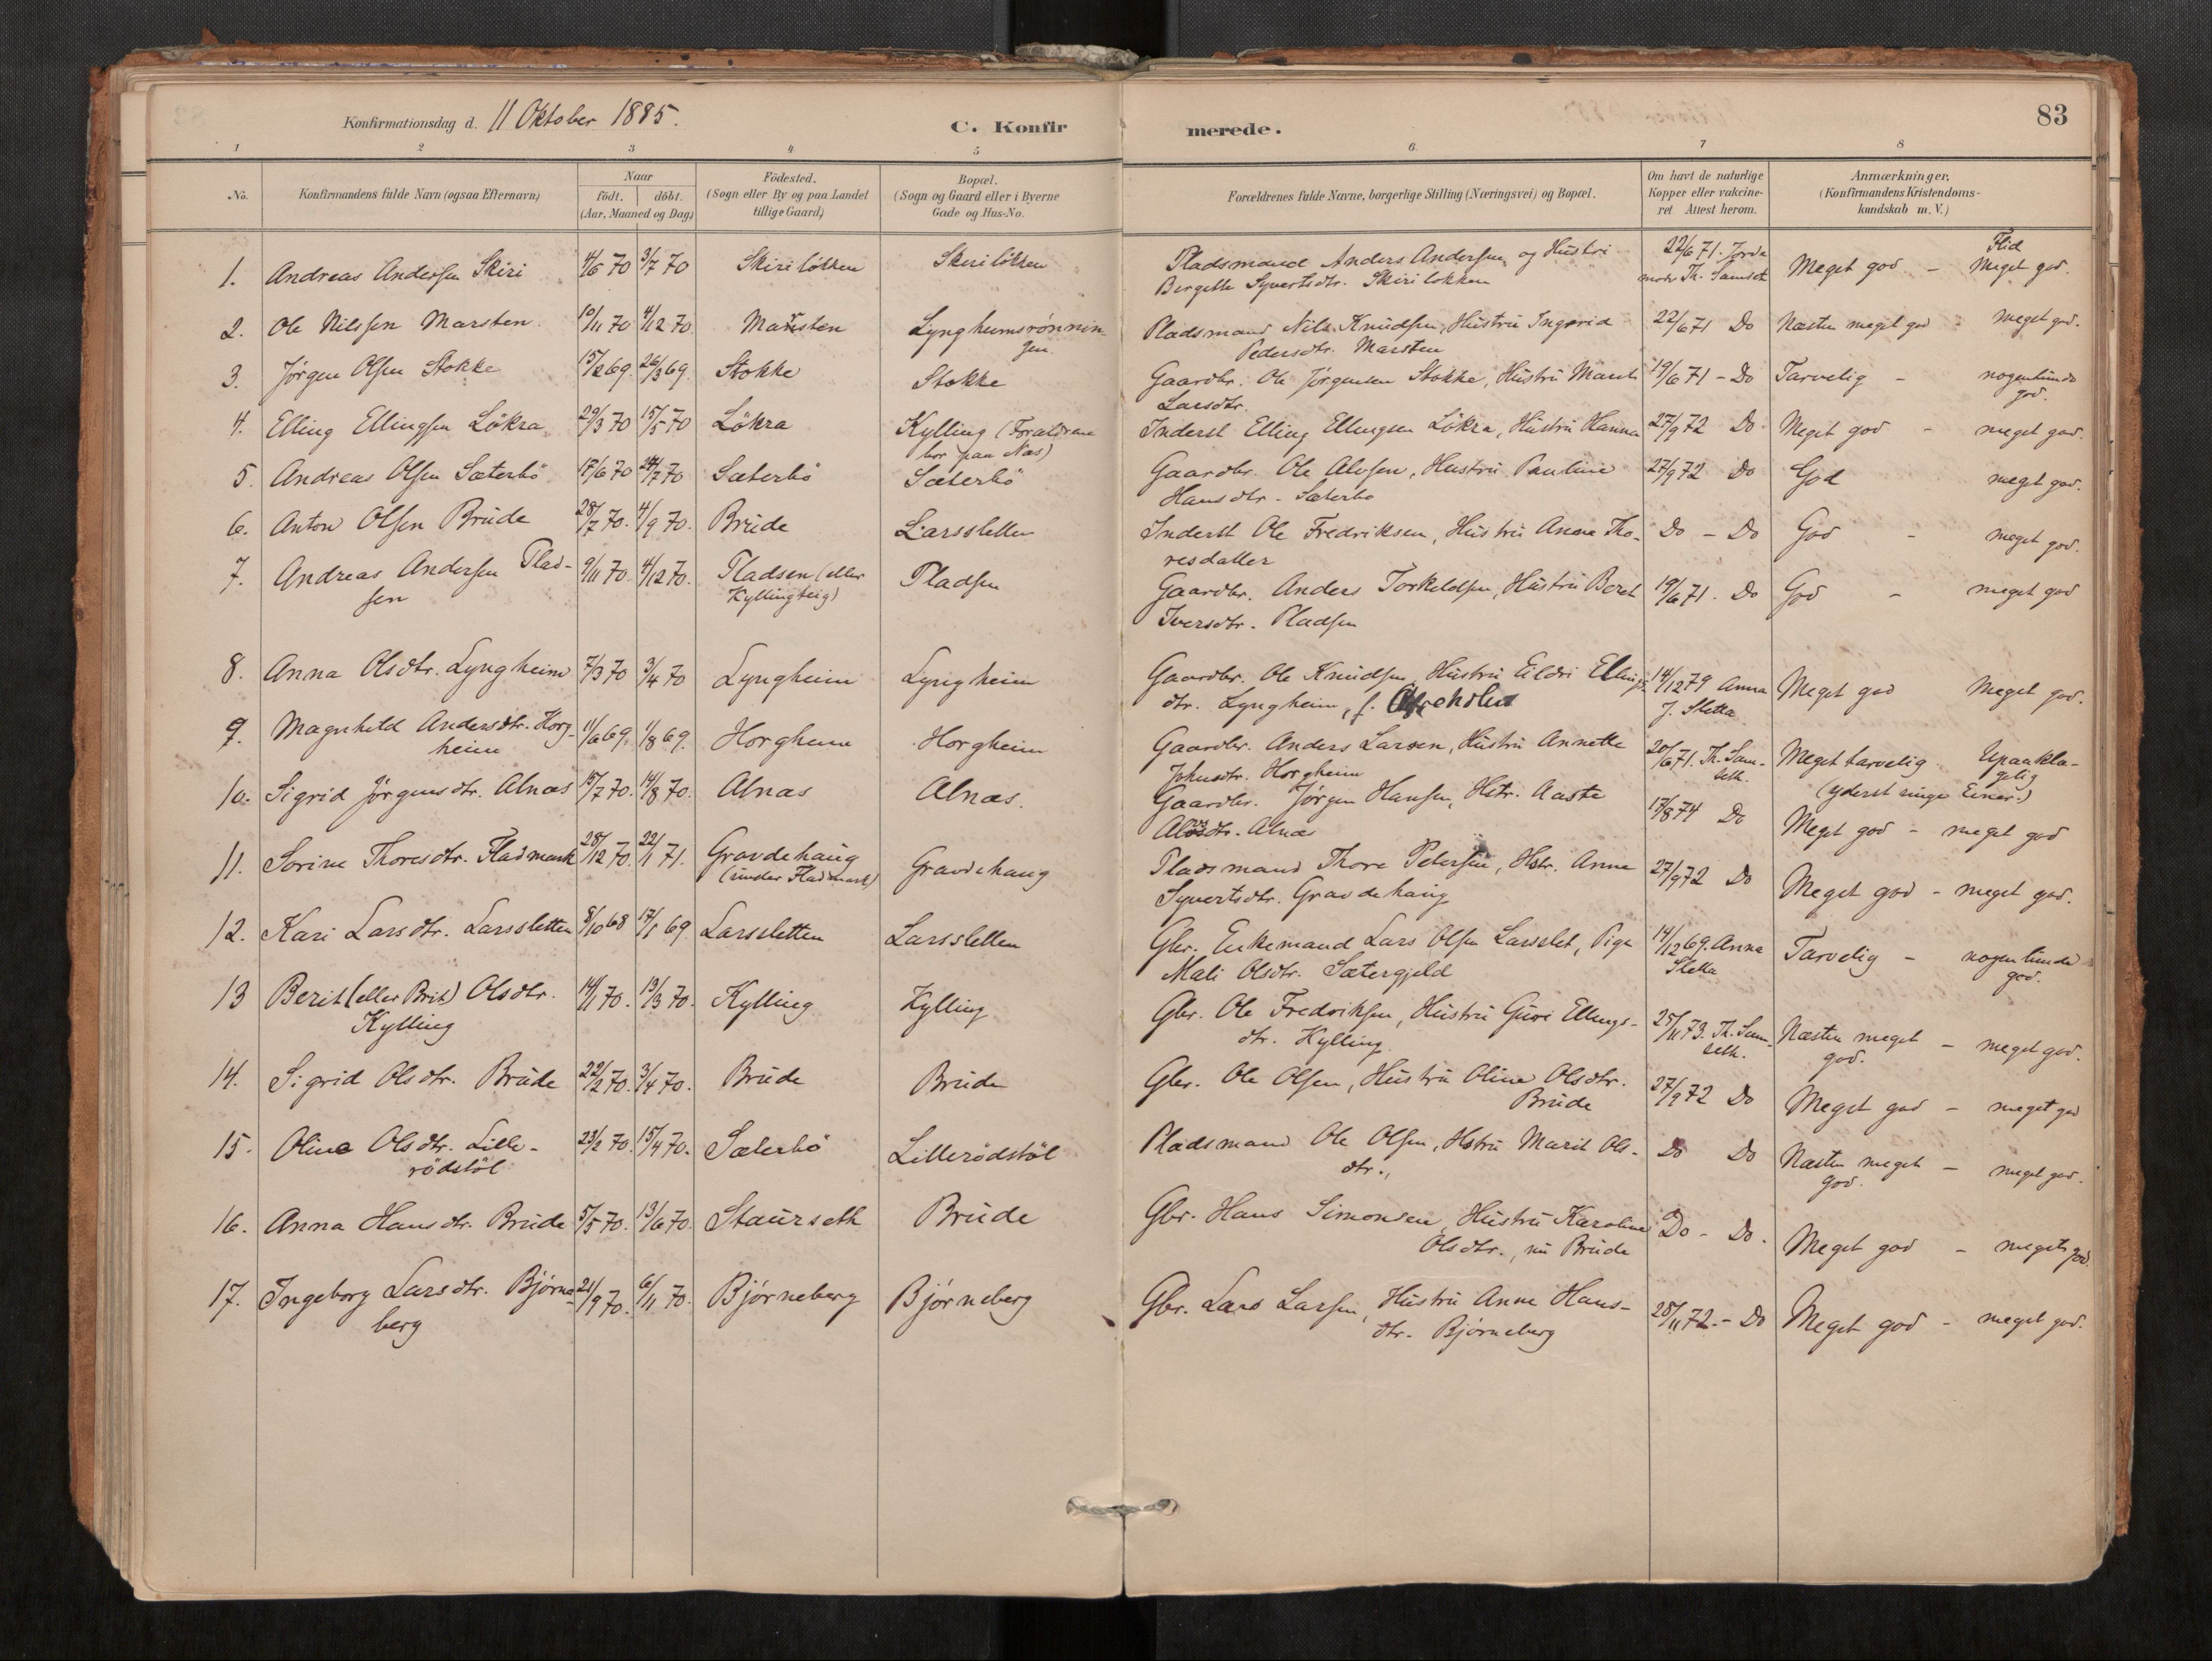 Konfirmationsdag d. 11 Oktober 1885.
C. Konfirmerede.
83
1 2 3 4 5 6 7 8
No. Konfirmandens fulde Navn (ogsaa Efternavn) Naar födt. döbt. (Aar, Maaned og Dag) Födested. (Sogn eller By og paa Landet tillige Gaard) Bopæl. (Sogn og Gaard eller i Byerne Gade og Hus-No. Forældrenes fulde Navne, borgerlige Stilling (Næringsvei) og Bopæl. Om havt de naturlige Kopper eller vakcineret Attest herom. Anmærkninger, (Konfirmandens Kristendomskundskab m. V.)
Flid
1. Andreas Andersen Skiri 4/6 70 3/7 70 Skirilökken Skirilökken Pladsmand Anders Andersen og Hustru 22/6 71. Jorde
Bergitte Syvertsdtr. Skirilokken moder Th. Samset Meget god - Meget god.
2. Ole Nilssen Marsten. 10/11 70 4/12 70 Marsten Lyngheimsrönnin- Pladsmand Nils Knudsen, Hustru Ingerid 22/6 71 Do Næsten meget god - meget god.
gen. Pedersdtr. Marsten
3. Jörgen Olsen Stokke 15/2 69. 26/3 69. Stokke Stokke Gaardbr. Ole Jörgensen Stokke, Hustru Marit 19/6 71 - Do Tarvelig - nogenlunde
Larsdtr. god.
4. Elling Ellingsen Lökra 29/3 70 15/5 70 Lökra Kylling (Forældrene Inderst Elling Ellingsen Lökra, Hustru Hanna 27/9 72 Do Meget god - meget god.
bor paa Næs)
5. Andreas Olsen Sæterbö 17/6 70 24/7 70 Sæterbö Sæterbö Gaardbr. Ole Olsen, Hustru Pauline 27/9 72 Do God meget god.
Hansdtr. - Sæterbo
6. Anton Olsen Brude 28/7 70. 4/9 70. Brude Larssletten Inderst Ole Fredriksen, Hustru Anne Tho- Do - Do God - meget god.
resdatter
7. Andreas Andersen Plad- 9/11 70. 4/12 70. Pladsen (eller Pladsen Gaardbr. Anders Torkeldsen, Hustru Beret 19/6 71. Do God - meget god
sen Kyllingteig) Iversdtr. Pladsen
8. Anna Olsdtr. Lyngheim 7/3 70 3/4 70 Lyngheim Lyngheim Gaardbr. Ole Knudsen, Hustru Eildri Ellings- 14/12 79 Anna Meget god Meget god.
dtr. Lyngheim, f. J. Sletta
9. Magnhild Andersdtr. Horg- 11/6 69. 1/8 69. Horgheim Horgheim Gaardbr. Anders Larsen, Hustru Annette 20/6 71. Th. Sam- Meget tarvelig. Upaakla-
heim Johnsdtr. Horgheim seth. gelig
(yderst ringe Evner.)
10. Sigrid Jörgensdtr. Alnæs 15/7 70. 14/8 70. Alnæs Alnæs. Gaardbr. Jörgen Hansen, Hstr. Aaste 17/8 74 Do Meget god - meget god
dtr. Alnæs
11. Sorine Thoresdtr. Fladmark 28/12 70. 22/1 71. Gravdehaug Gravdehaug Pladsmand Thore Petersen, Hstr. Anne 27/9 72 Do Meget god - meget god.
(under Fladmark) Syvertsdtr. Gravdehaug
12. Kari Larsdtr. Larssletten 8/10 68 17/1 69 Larssletten Larssletten Gbr. Enkemand Lars Olsen Larsslet, Pige 14/12 69. Anna Tarvelig - nogenlunde
Mali Olsdtr. Sætergjeld Sletta god.
13 Berit (eller Brit) Olsdtr. 14/1 70. 13/3 70. Kylling Kylling Gbr. Ole Fredriksen, Hustru Guri Ellings- 25/11 73. Th. Sam- Næsten meget - meget god.
Kylling dtr. Kylling. seth. god.
14. Sigrid Olsdtr. Brude 22/2 70. 3/4 70. Brude Brude Gbr. Ole Olsen, Hustru Oline Olsdtr. 27/9 72 Do Meget god - meget god
Brude
15. Oline Olsdtr. Lille- 23/2 70. 15/4 70. Sæterbö Lillerödstöl Pladsmand Ole Olsen, Hstru Marit Ols- Do Do Næsten meget - meget god.
rödstöl dtr., god.
16. Anna Hansdtr. Brude 5/5 70. 13/6 70. Staurseth Brude Gbr. Hans Simonsen, Hustru Karoline Do - Do. Meget god - meget god.
Olsdtr., nu Brude
17. Ingeborg Larsdtr. Björne- 21/9 70. 6/11 70. Björneberg Björneberg Gbr. Lars Larsen, Hustru Anne Hans- 28/11 72. - Do Meget god - meget god.
berg dtr. Björneberg